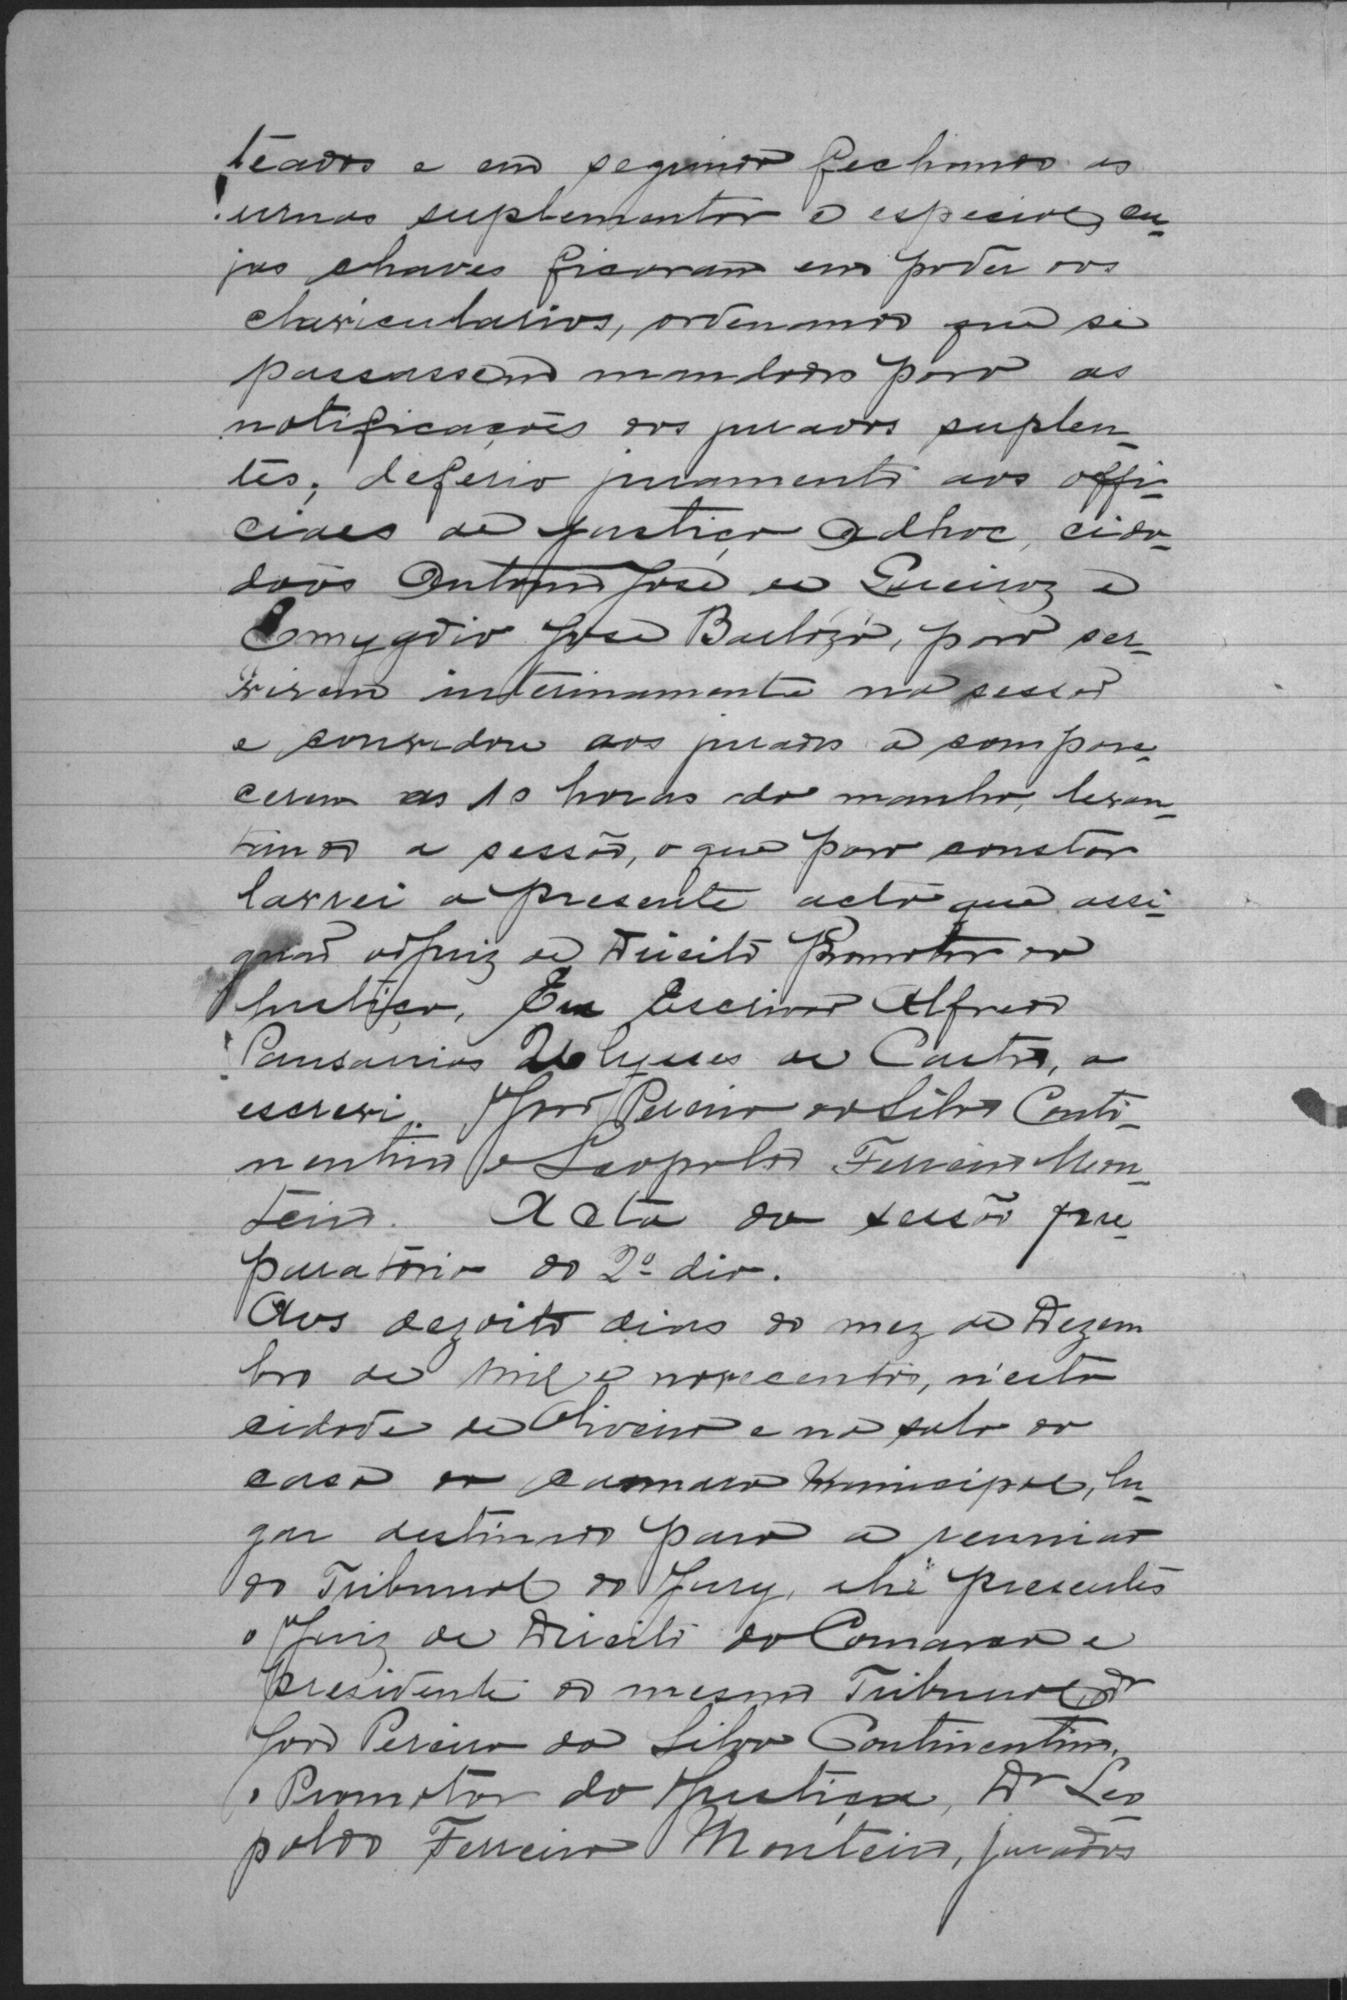 teados e em seguida fechando as
urnas suplementar e especial, cu-
jas chaves ficaram em poder dos
clavicularios, ordenando que se
passassem mandados para as
notificações dos jurados suplen-
tes; deferio juramento aos offi-
ciaes de justiça adhoc, cida-
dãos Antonio José de Queiroz e
Emygdio José Baptista, para ser-
virem interinamente na sessão
e convidou aos jurados a compare-
cerem as 10 horas da manhã, levan-
tando a sessão, o que para constar
lavrei a presente acta que assi-
gnão o Juiz de Direito Promotor da
Justiça. Eu Escrivão Alfredo
Pausanias Ulysses de Castro, a
escrevi. João Pereira da Silva Conti-
nentino e Leopoldo Ferreira Mon-
teiro. Acta da sessão pre-
paratória do 2º dia.
Aos dezoito dias do mez de Dezem
bro de mil e novecentos, n'esta
cidade de Oliveira e na sala da
casa da Camara Municipal, lu-
gar destinado para a reunião
do Tribunal do Jury, ahi presentes
o Juiz de Direito da Comarca e
presidente do mesmo Tribunal, Dr
João Pereira da Silva Continentino,
o Promotor da Justiça, Dr Leo
poldo Ferreira Monteiro, jurados